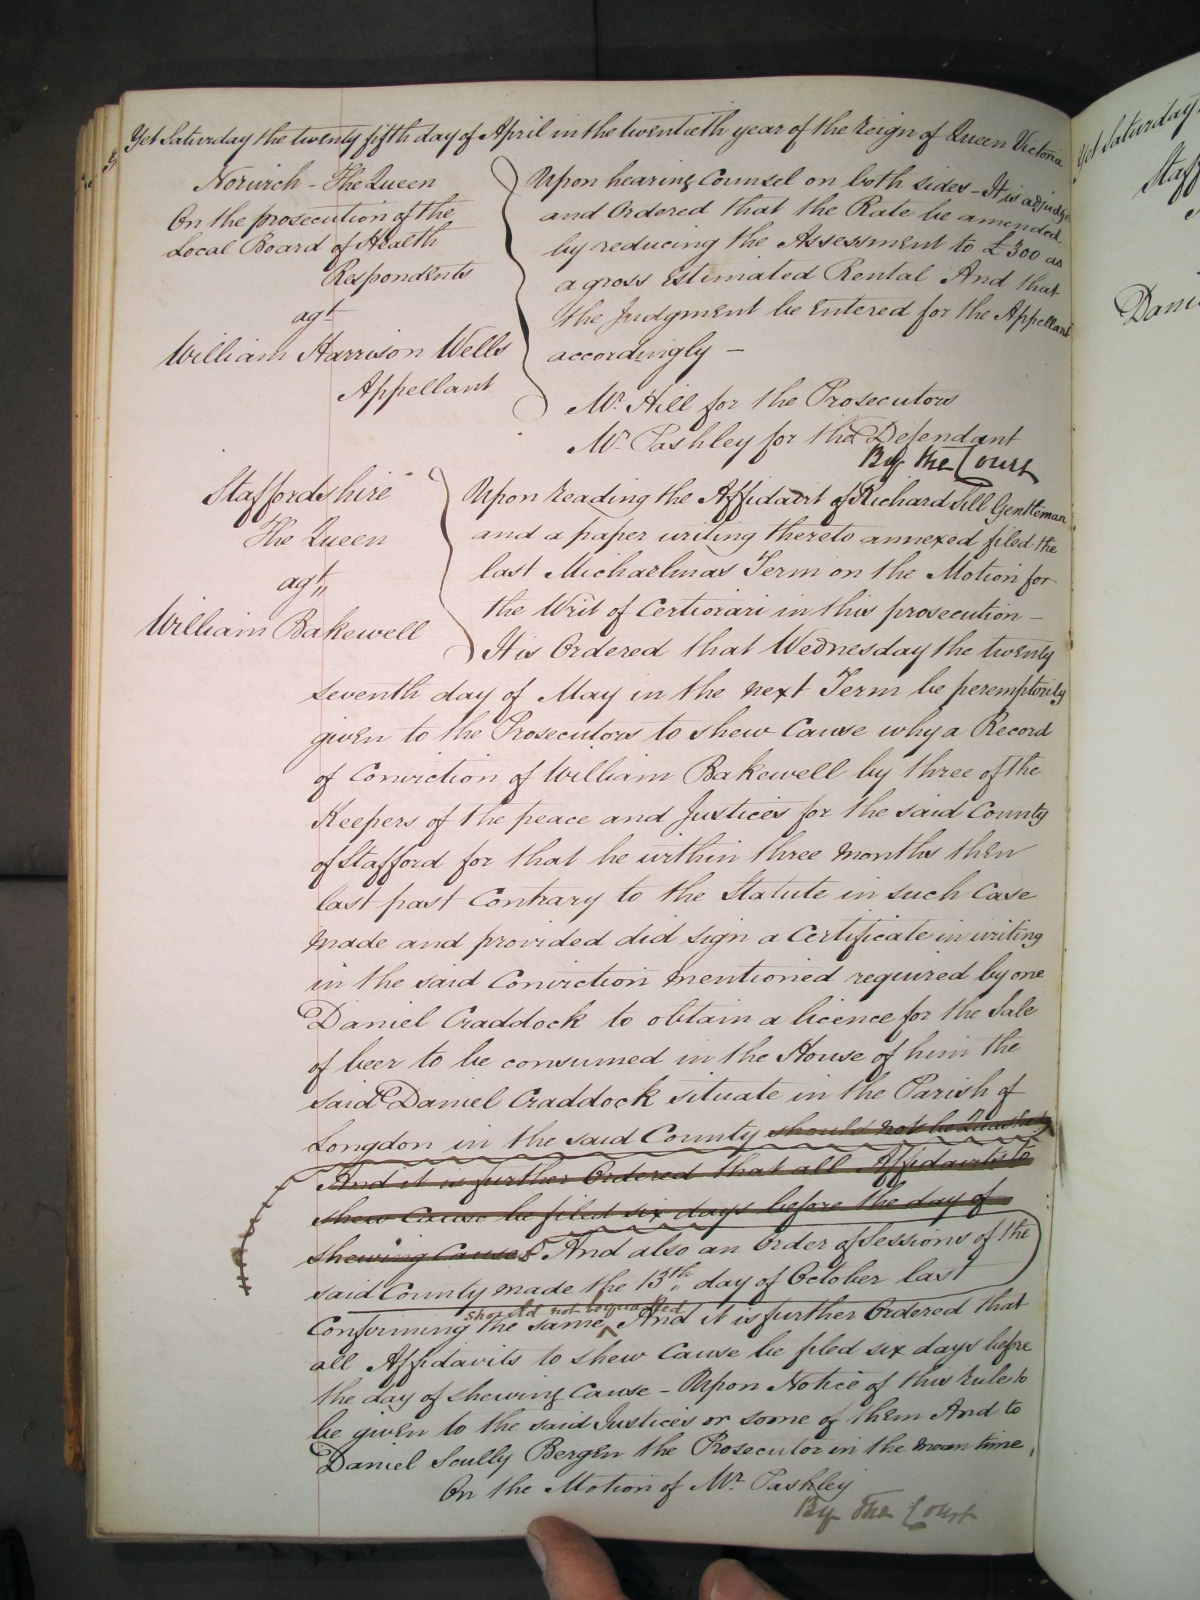 Yet Saturday the twenty fifth day of April in the twentieth year of the Reign of Queen Victoria
Norwich - The Queen
On the prosecution of the
Local Board of Health
Respondents
agt
William Harrison Wells
Appellant
Upon hearing Counsel on both sides - It is adjudged
and Ordered that the Rate be amended
by reducing the Assessment to £300 as
a gross Estimated Rental And that
the Judgment be Entered for the Appellant
accordingly -
Mr. Hill for the Prosecutors
Mr. Pashley for the Defendant
By the Court
Staffordshire
The Queen
agt,,
William Bakewell
Upon reading the Affidavit of Richard Sill Gentleman
and a paper writing thereto annexed filed the
last Michaelmas Term on the Motion for
the Writ of Certiorari in this prosecution -
It is Ordered that Wednesday the twenty
seventh day of May in the next Term be peremptorily
given to the Prosecutors to shew Cause why a Record
of Conviction of William Bakewell by three of the
Keepers of the peace and Justices for the said County
of Stafford for that he within three months then
last past Contrary to the Statute in such Case
made and provided did sign a Certificate in writing
in the said Conviction mentioned required by one
Daniel Craddock to obtain a licence for the Sale
of beer to be consumed in the House of him the
said Daniel Craddock situate in the Parish of
Longdon in the said County should not be Quashed
And it is further Ordered that all Affidavits to
shew Cause be filed six days before the day of
shewing Cause And also an Order of Sessions of the
said County made the 13th. day of October last
should not be quashed
Confirming the same ^ And it is further Ordered that
all Affidavits to shew Cause be filed six days before
the day of shewing Cause - Upon Notice of this Rule to
be given to the said Justices or some of them And to
Daniel Scully Bergen the Prosecutor in the mean time,
On the Motion of Mr. Pashley
By The Court
Yet Saturday
Staff
Dani